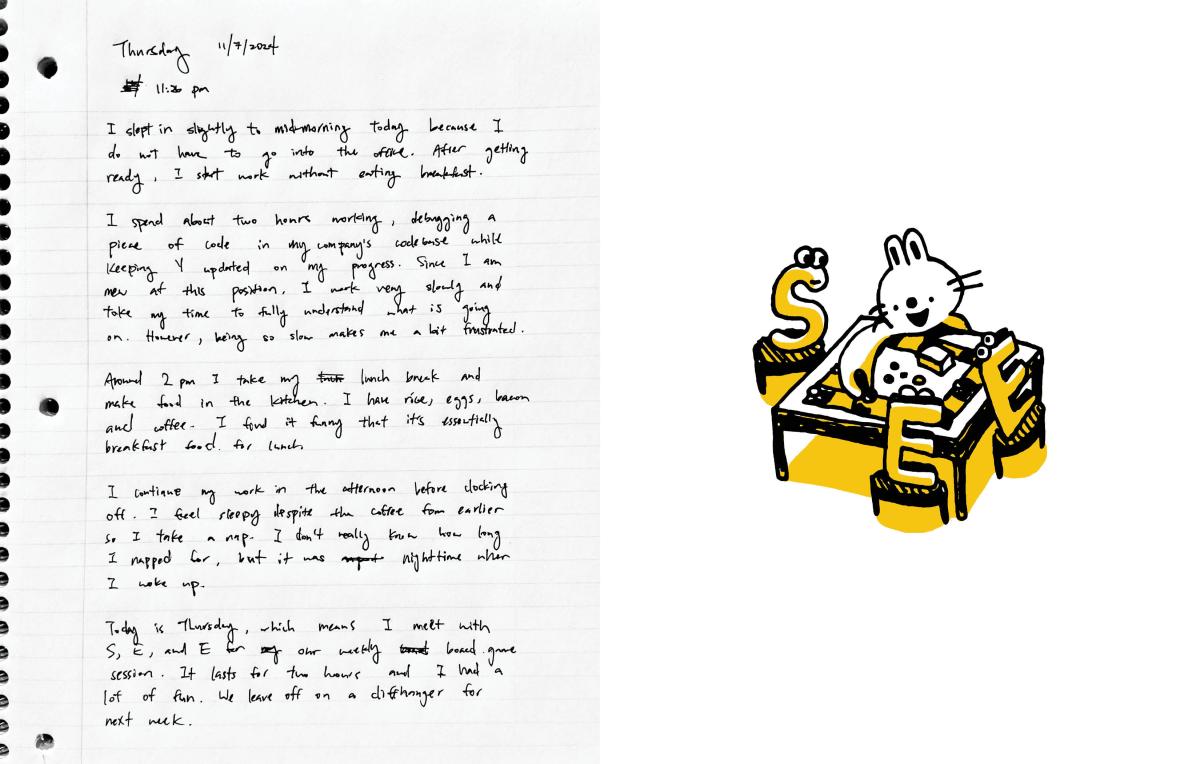 Thursday 11/7/2024
11:26 pm
I slept in slightly to mid-morning today because I
do not have to go into the office. After getting
ready, I start work without eating breakfast.
I spend about two hours working, debugging a
piece of code in my company's codebase while
keeping Y updated on my progress. Since I am
new at this position, I work very slowly and
take my time to fully understand what is going
on. However, being so slow makes me a bit frustrated.
Around 2 pm I take my lunch break and
make food in the kitchen. I have rice, eggs, bacon
and coffee. I find it funny that it's essentially
breakfast food for lunch
I continue my work in the afternoon before clocking
off. I feel sleepy despite the coffee from earlier
so I take a nap. I don't really know how long
I napped for, but it was nighttime when
I woke up.
Today is Thursday, which means I meet with
S, E, and E for our weekly board game
session. It lasts for two hours and I had a
lot of fun. We leave off on a cliffhanger for
next week.
S
E
E